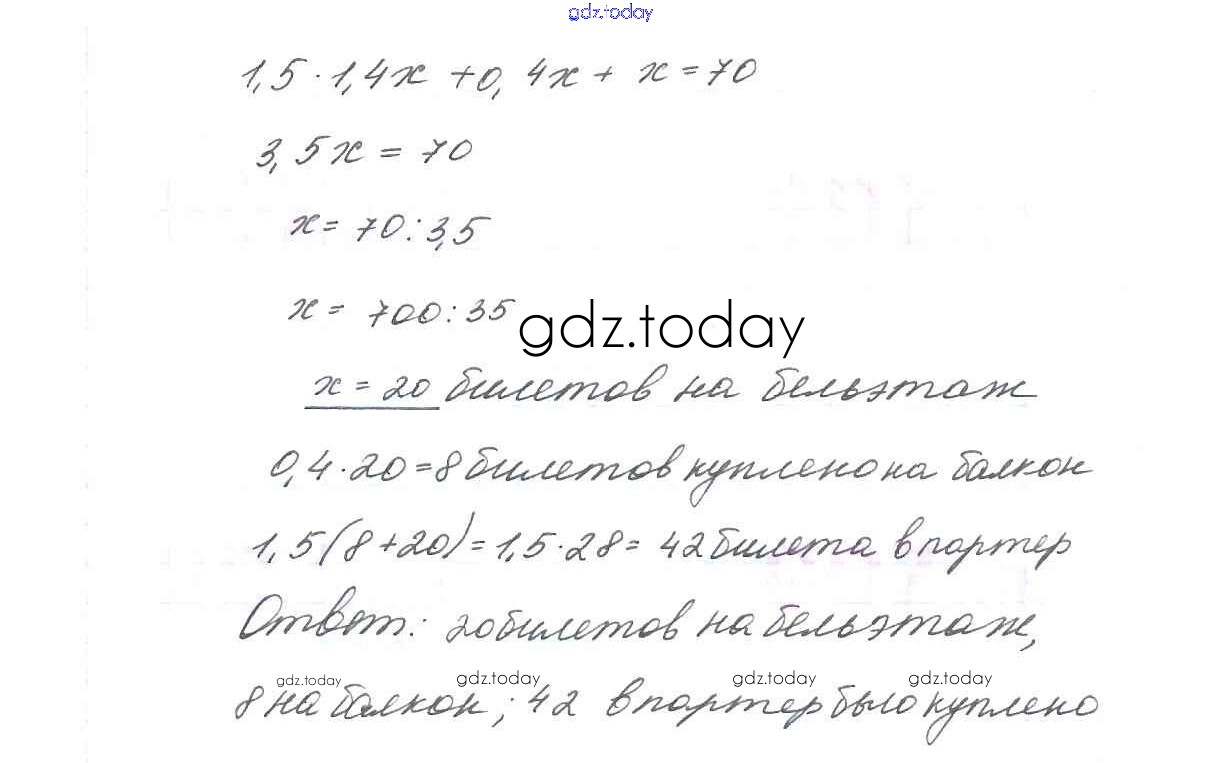 gdz.today
1,5 · 1,4x + 0,4x + x = 70
3,5x = 70
x = 70 : 3,5
x = 700 : 35
gdz.today
x = 20 билетов на бельэтаж
0,4 · 20 = 8 билетов куплено на балкон
1,5(8+20) = 1,5 · 28 = 42 билета в партер
Ответ: 20 билетов на бельэтаж,
gdz.today gdz.today gdz.today gdz.today
8 на балкон; 42 в партер было куплено